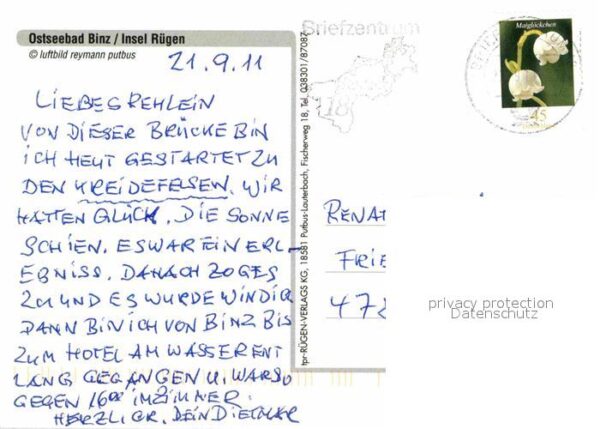 Ostseebad Binz / Insel Rügen
© luftbild reymann putbus
21.9.11
LIEBES REHLEIN
VON DIESER BRÜCKE BIN
ICH HEUT GESTARTET ZU
DEN KREIDEFELSEN. WIR
HATTEN GLÜCK. DIE SONNE
SCHIEN. ES WAR EIN ERL-
EBNISS. DANACH ZOG ES
ZU UND ES WURDE WINDIG
DANN BIN ICH VON BINZ BIS
ZUM HOTEL AM WASSER ENT
LANG GEGANGEN U. WAR SO
GEGEN 1600 IM ZIMMER.
HERZL. GR. DEIN DIETMAR
tpr-RÜGEN-VERLAGS KG, 18581 Putbus-Lauterbach, Fischerweg 18, Tel. 038301/87087
Briefzentrum
18
Maiglöckchen
45
RENAT
FRIE
472
privacy protection
Datenschutz